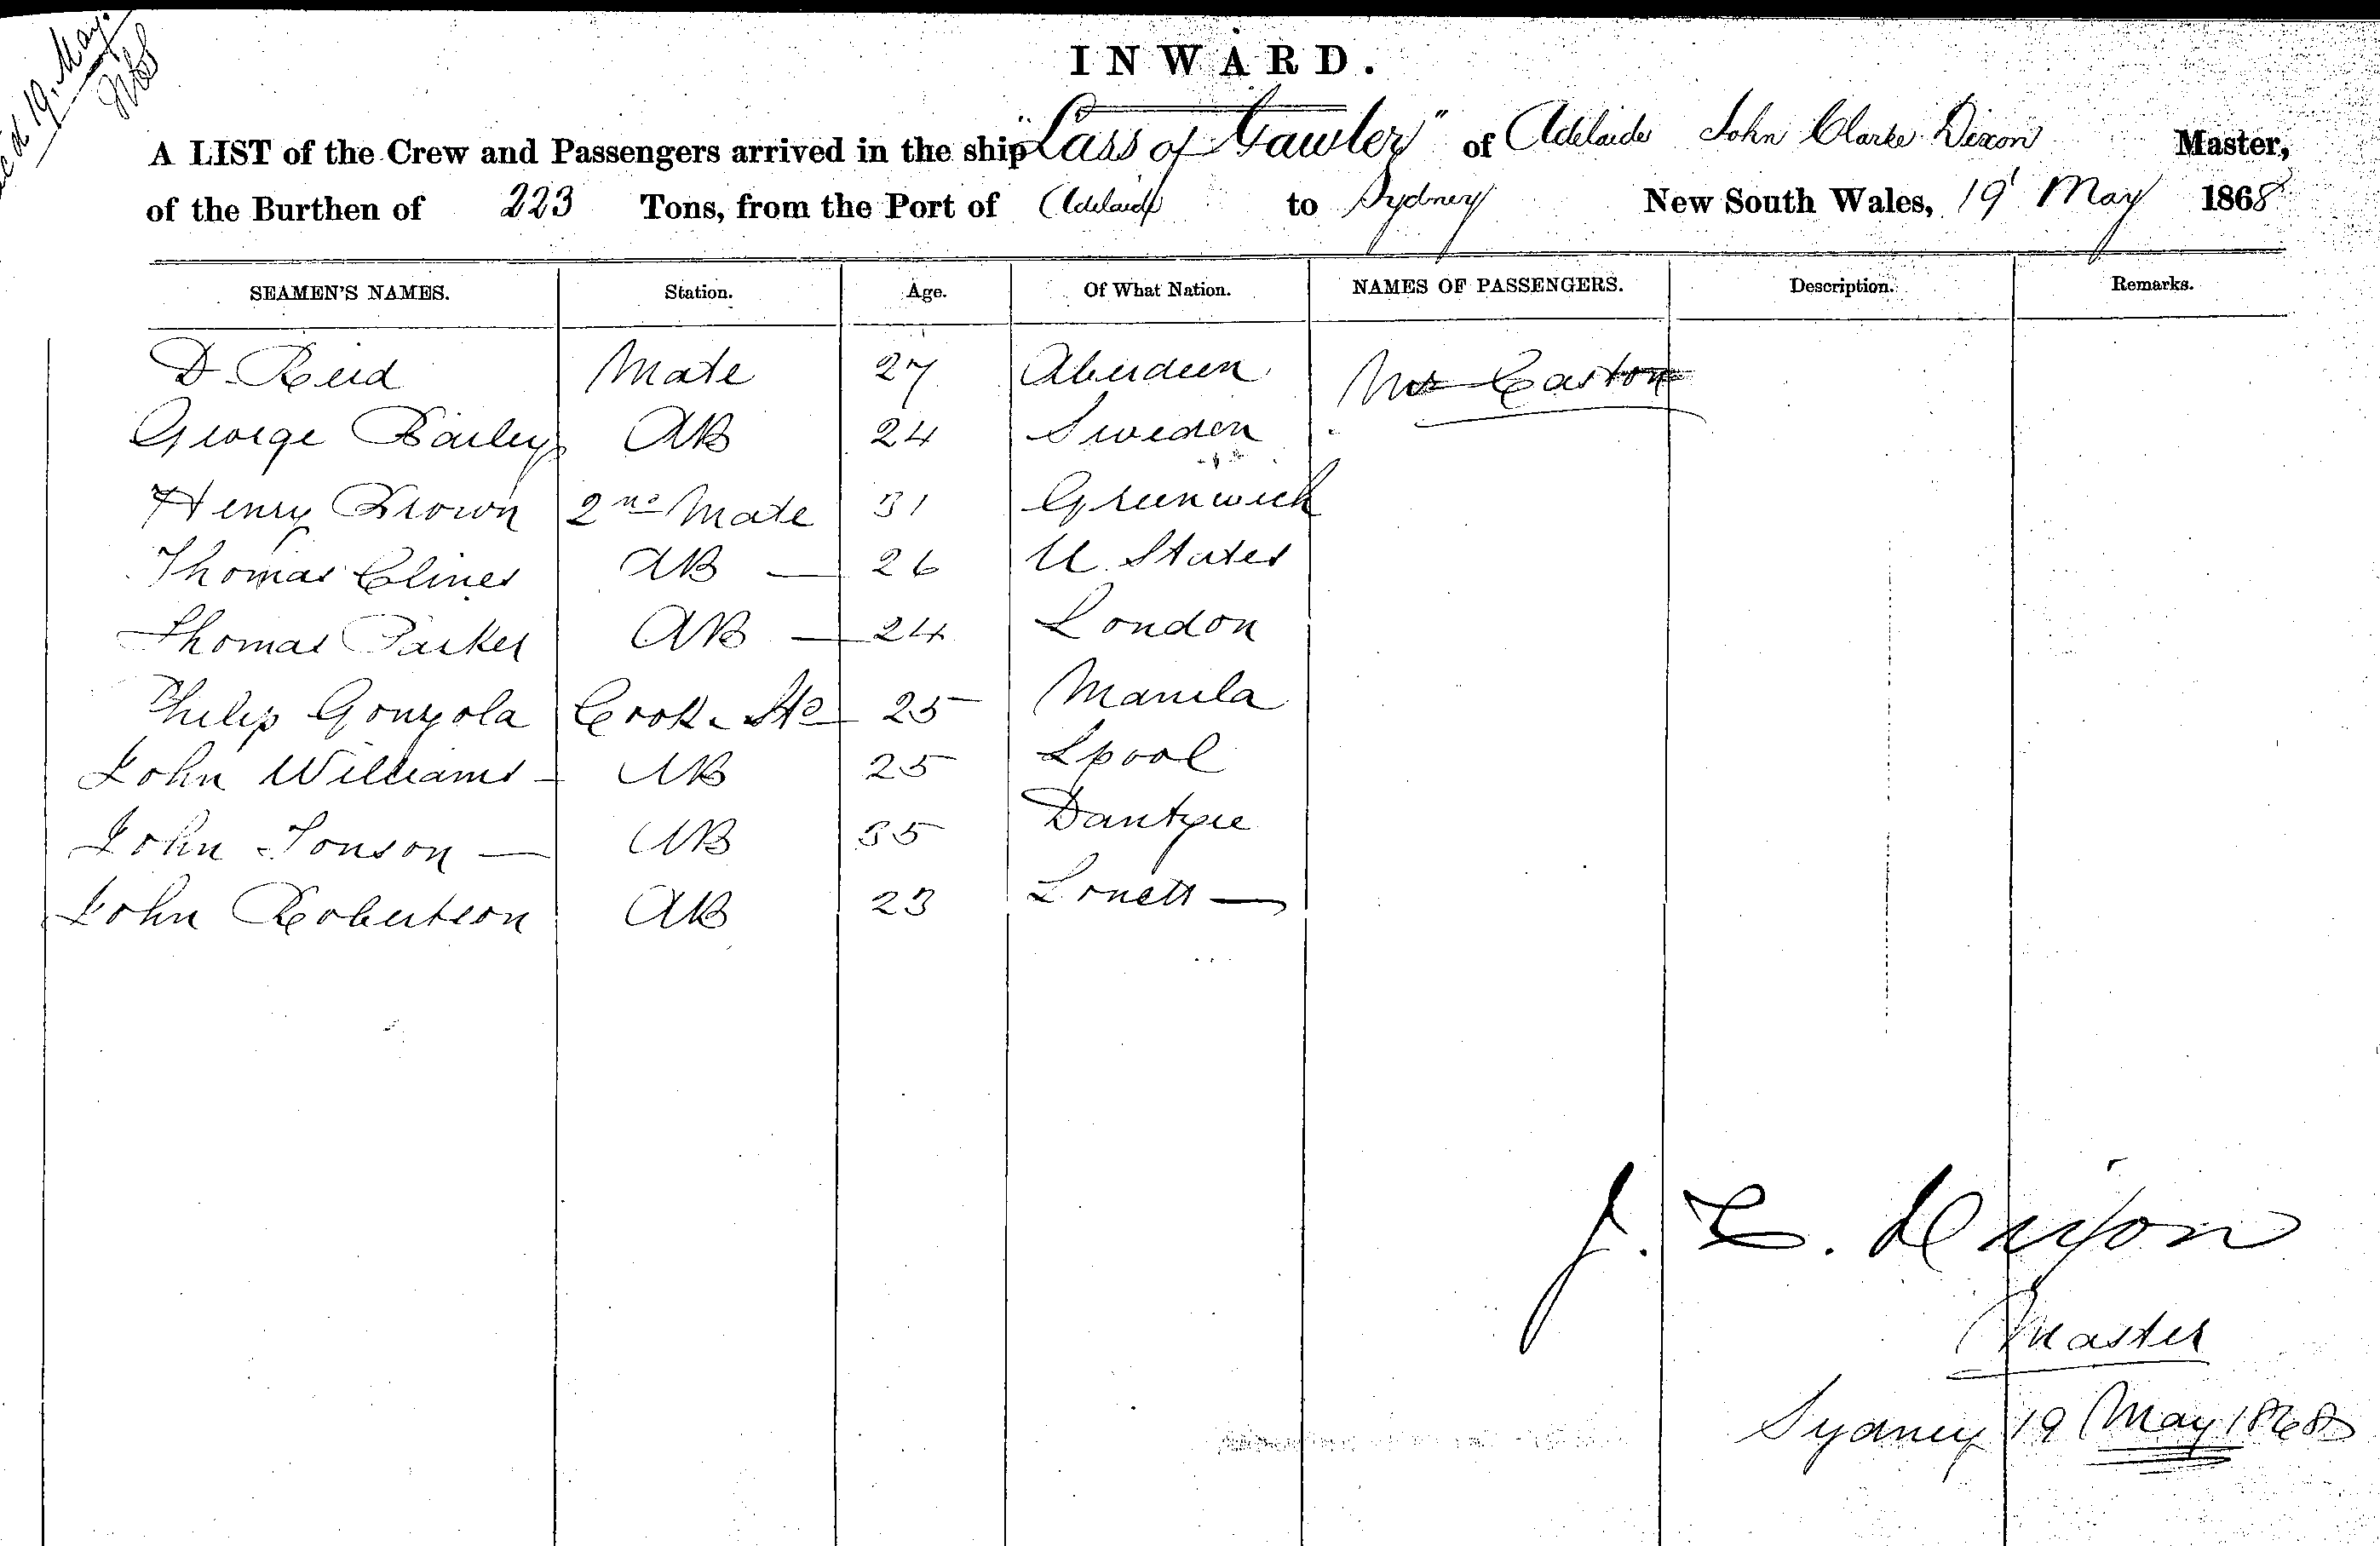 19. May.
INWARD.
A LIST of the Crew and Passengers arrived in the ship "Lass of Gawler" of Adelaide John Clarke Dixon Master,
of the Burthen of 223 Tons, from the Port of Adelaide to Sydney New South Wales, 19 May 1868
SEAMEN'S NAMES. Station. Age. Of What Nation. NAMES OF PASSENGERS. Description. Remarks.
D. Reid Mate 27 Aberdeen Mr Caston
George Bailey AB 24 Sweden
Henry Brown 2nd Mate 31 Greenwich
Thomas Clines AB — 26 U. States
Thomas Parker AB — 24 London
Philip Gonzola Cook & Std 25 Manila
John Williams — AB 25 Lpool
John Jonson — AB 35 Dantzic
John Robertson AB 23 —
J. C. Dixon
Master
Sydney 19 May 1868